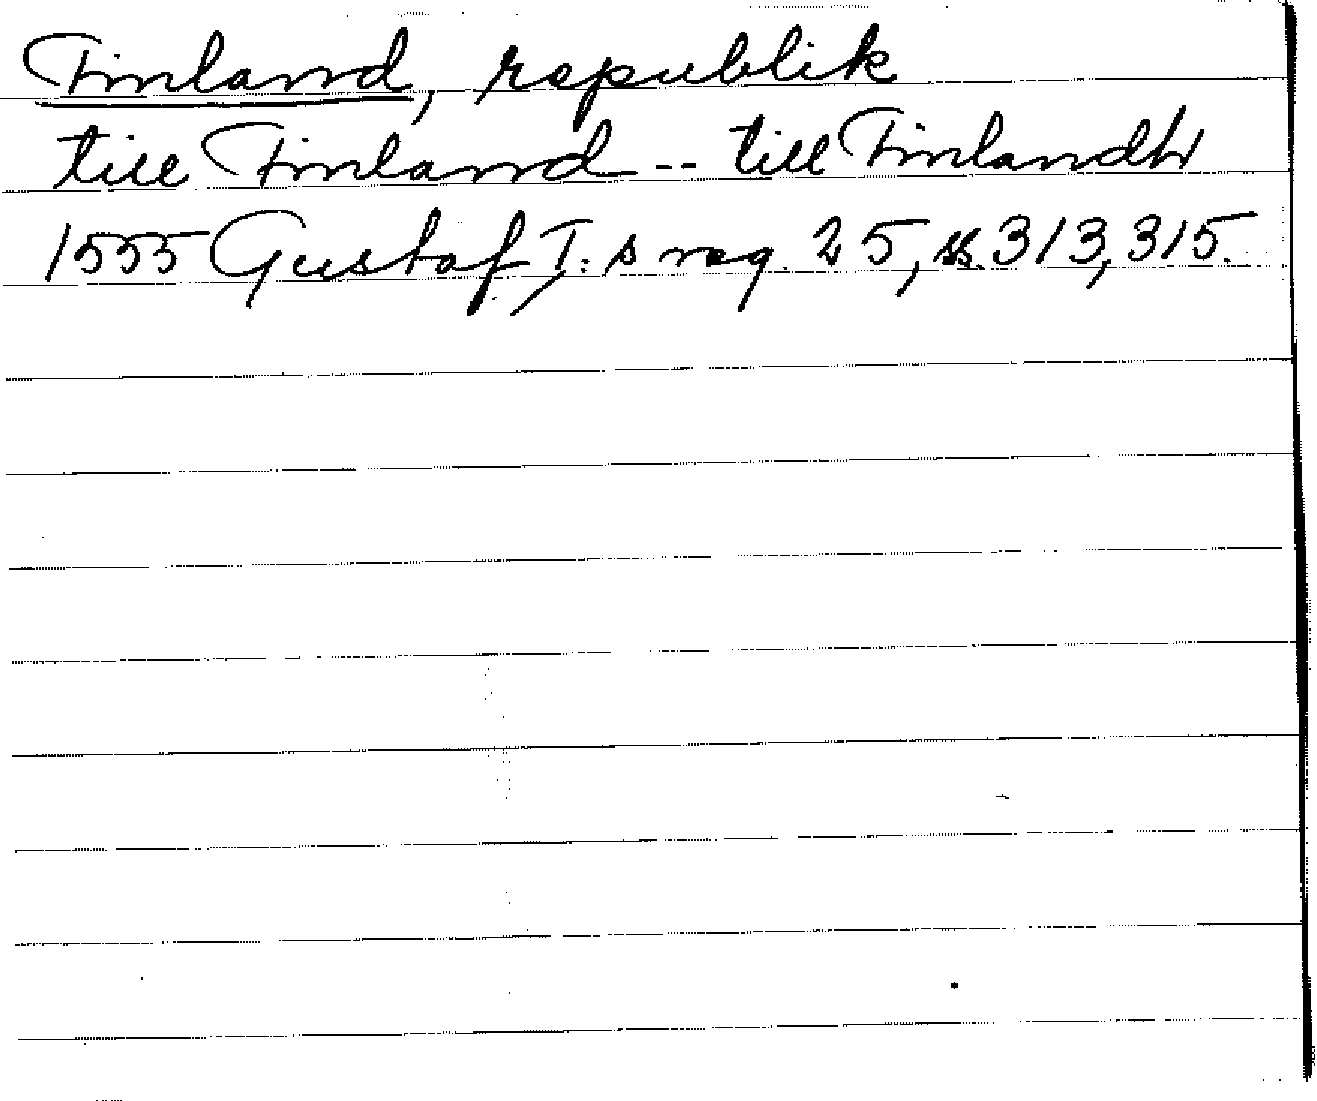 Finland, republik
till Finland -- till Finlandh
1555 Gustaf I:s reg. 25, ss. 313, 315.